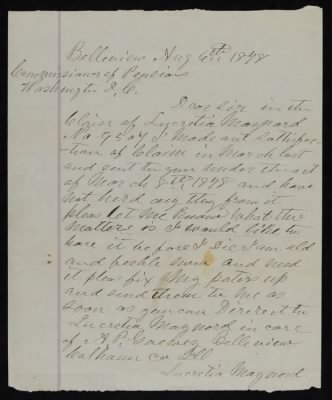 Belleview Aug 6th 1878
Commissioner of Pension
Washington D.C.
Dear Sir in the
Claim of Lucretia Maynard
No 9507 I Made out Sattisfac
tion of Claim in March last
and sent to you under the act
of March 9th 1878 and have
not herd any thing from it
pleas let Me know What the
matter is I would like to
have it before I Die I am old
and feeble now and need
it pleas fix My papers up
and send them to me as
soon as you can Derirect to
Lucretia Maynord in care
of A P. Belleview
Calhoun co Ill
Lucretia Maynord